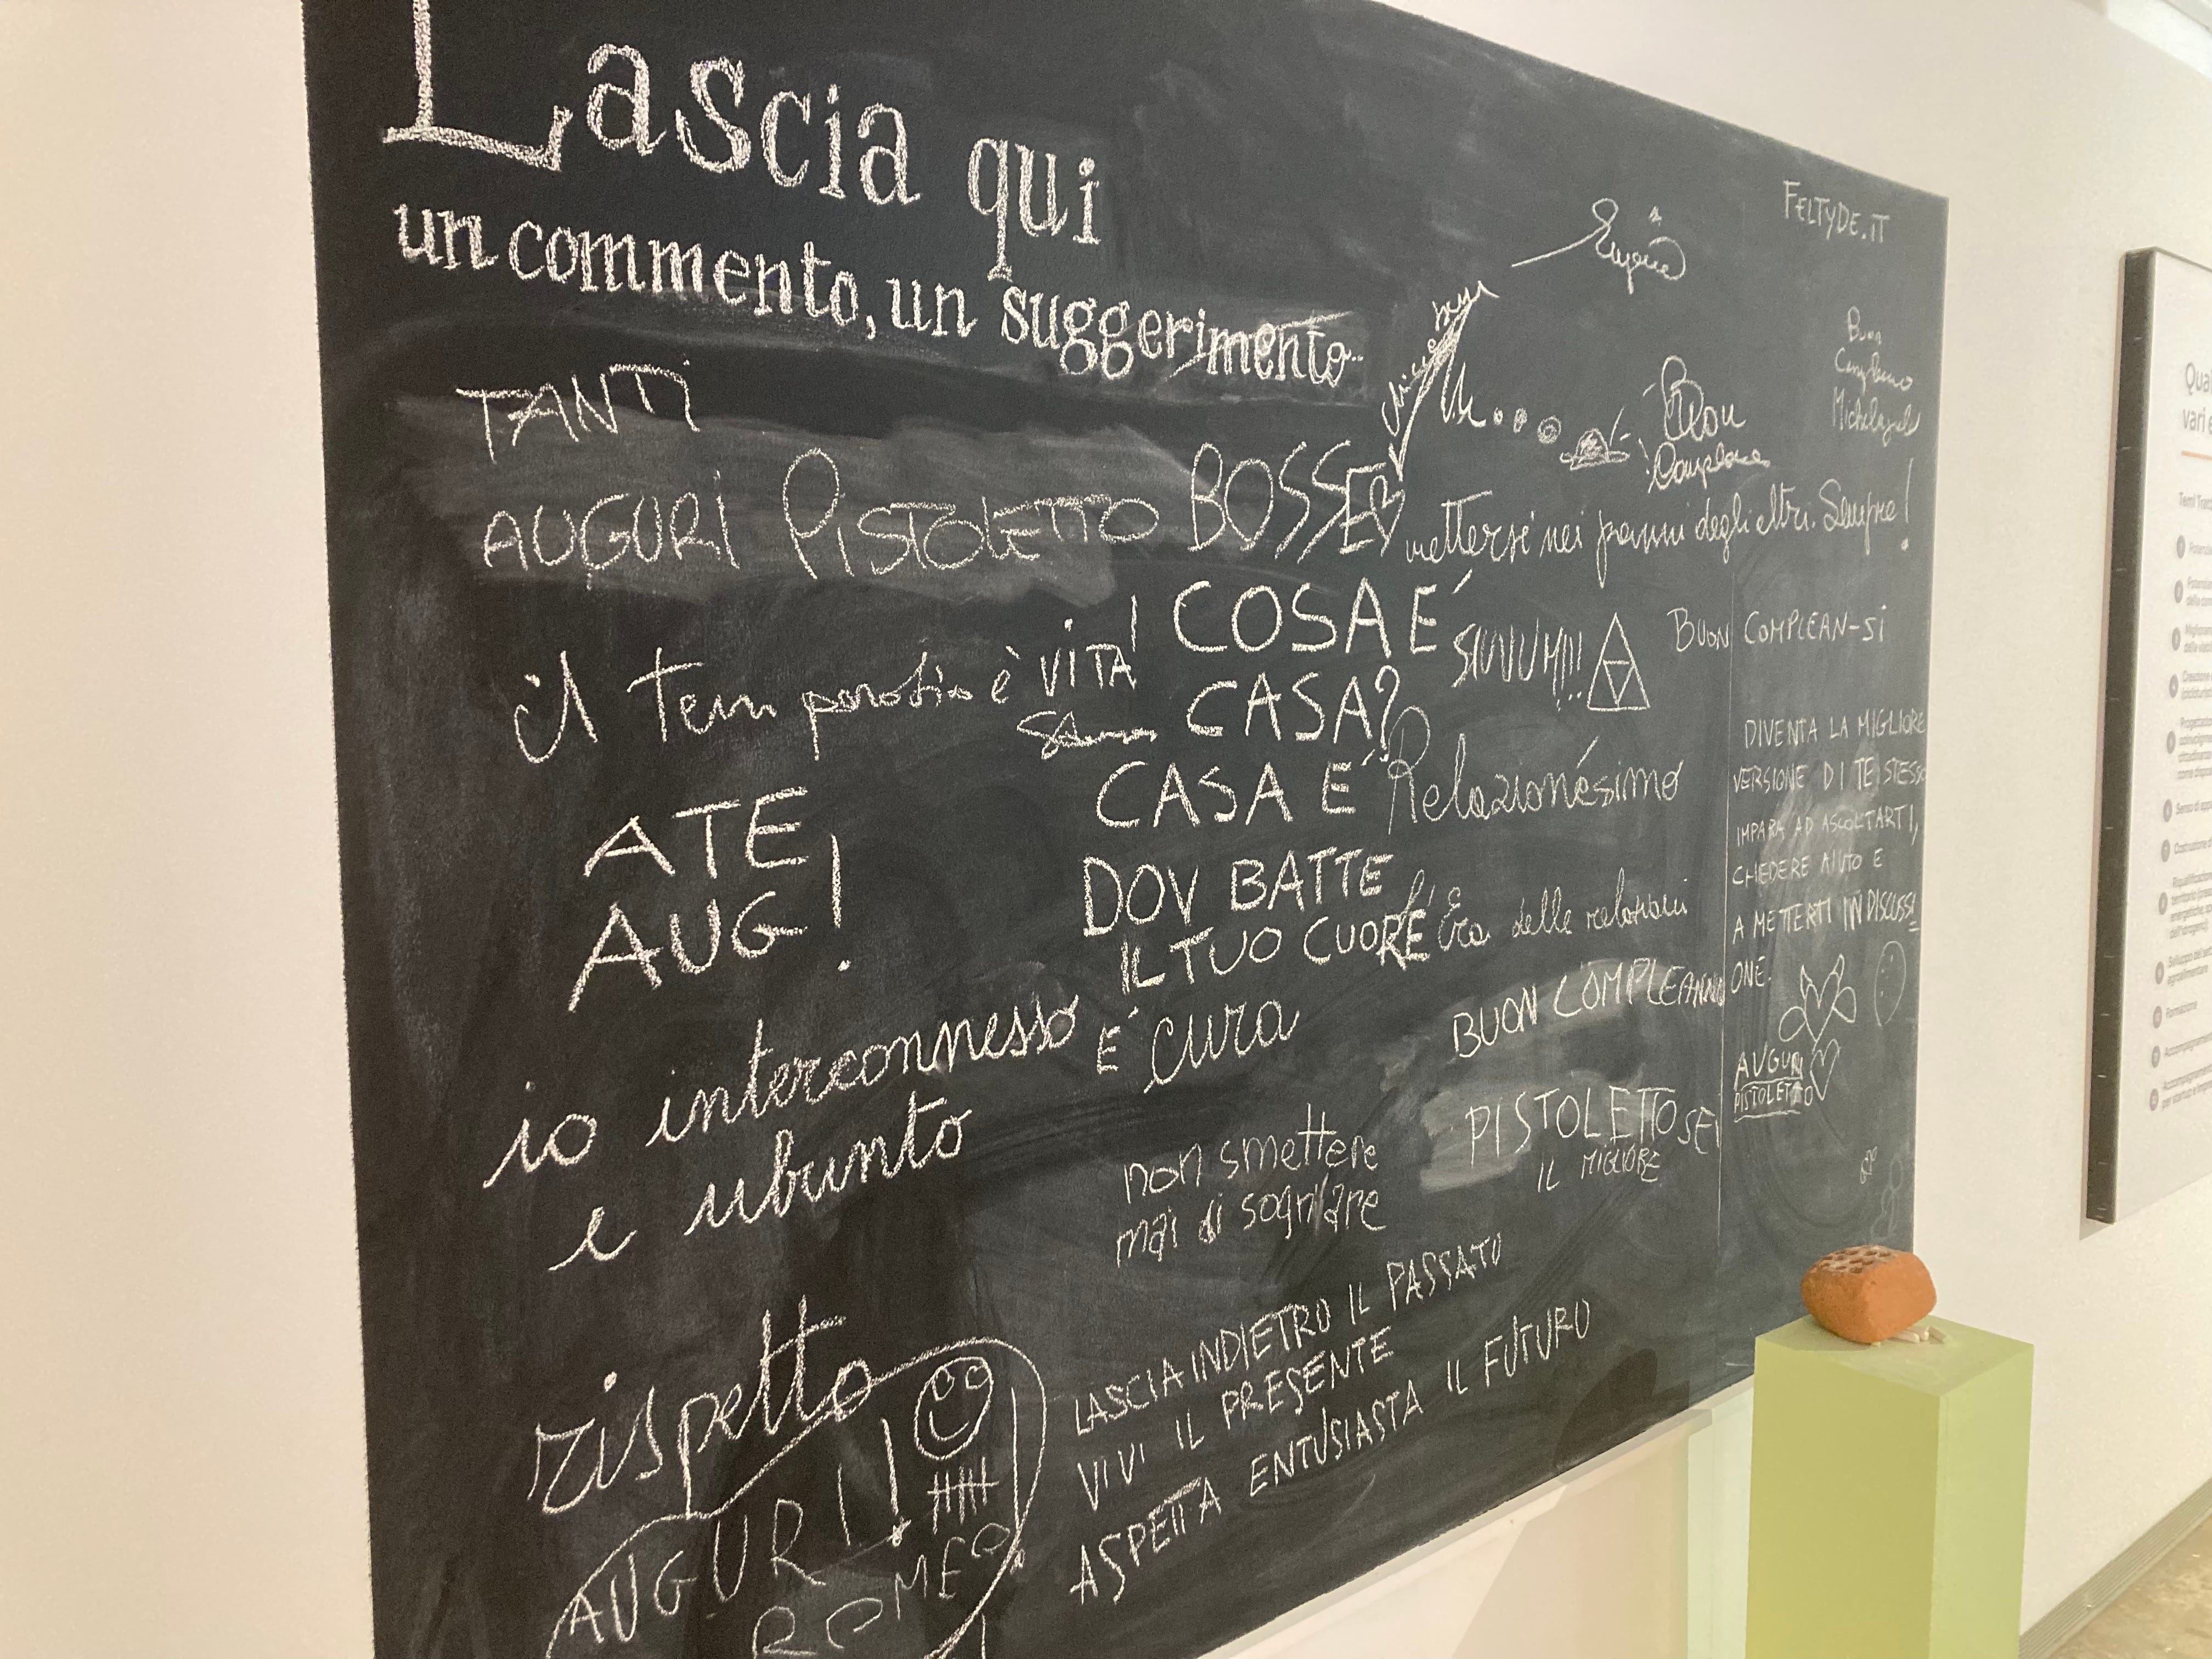 Lascia qui
un commento, un suggerimento...
FELTYDE.IT
TANTI
AUGURI PISTOLETTO BOSS
Buon
Compleanno
Buon
mettersi nei panni degli altri. Sempre!
il
è VITA!
COSA E'
CASA?
CASA E'
DOV BATTE
IL TUO CUORE
E' cura
SIUUUM!!!
BUON COMPLEAN-SI
Relazionésimo
l'Era delle relazioni
DIVENTA LA MIGLIORE
VERSIONE DI TE STESSO
IMPARA AD ASCOLTARTI,
CHIEDERE AIUTO E
A METTERTI IN DISCUSSI
ONE.
ATE
AUG!
io interconnesso
e ubunto
BUON COMPLEANNO
PISTOLETTO SEI
IL MIGLIORE
AUGURI
PISTOLETTO
non smettere
mai di sognare
rispetto
AUGURI!
ROMEO
LASCIA INDIETRO IL PASSATO
VIVI IL PRESENTE
ASPETTA ENTUSIASTA IL FUTURO
Formazione